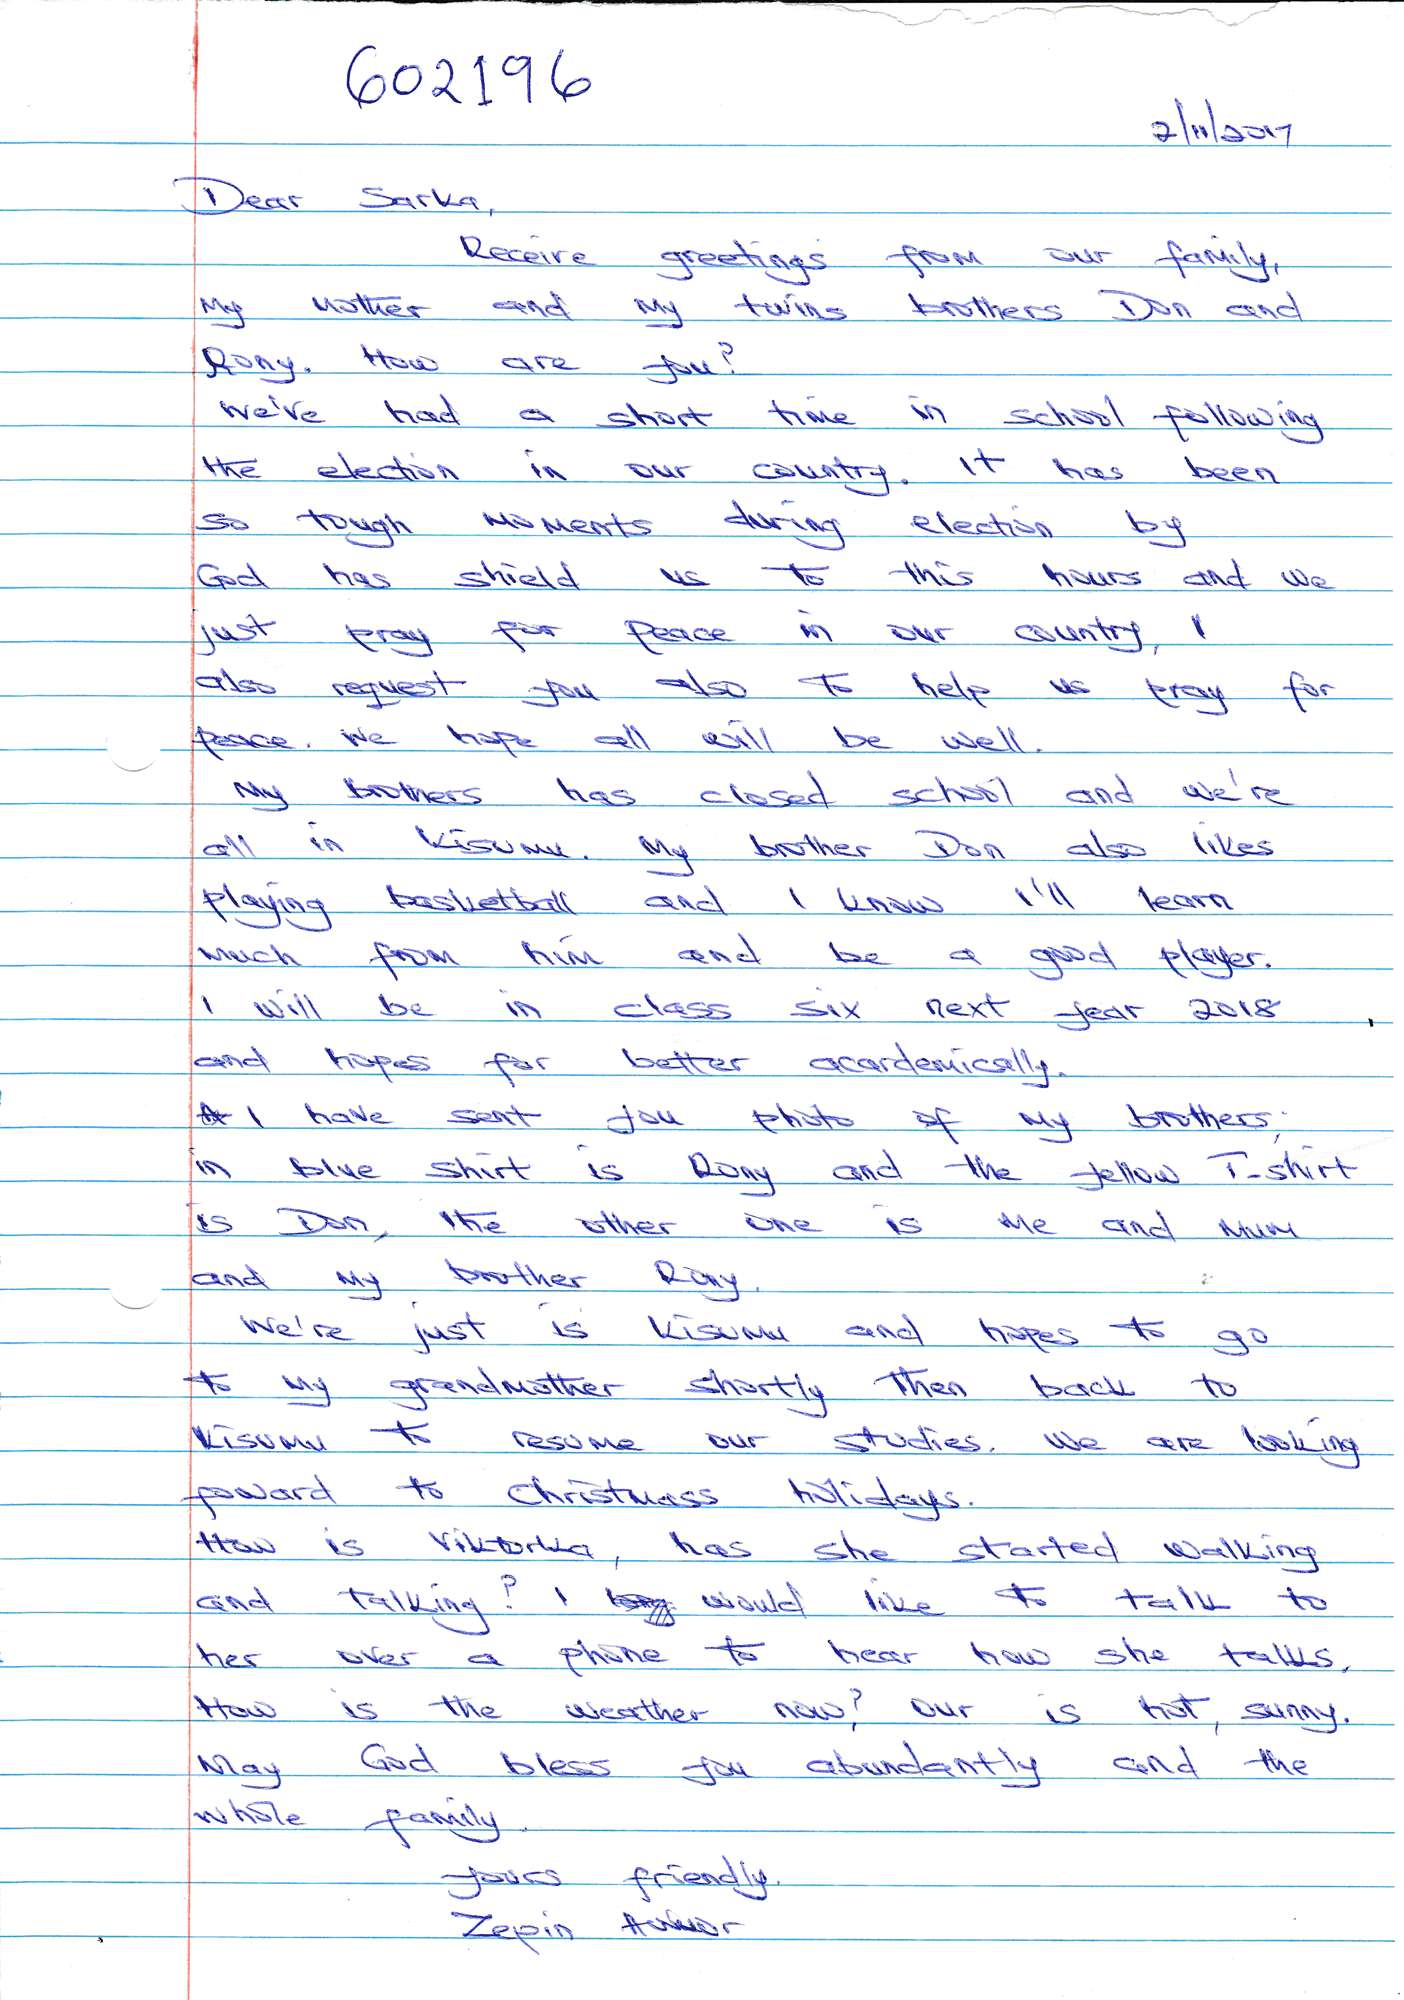 602196
2/11/2017
Dear Sarka,
Receive greetings from our family,
my mother and my twins brothers Don and
Rony. How are you?
We've had a short time in school following
the election in our country. It has been
so tough moments during election by
God has shield us to this hours and we
just pray for peace in our country, I
also request you also to help us pray for
peace. We hope all will be well.
My brothers has closed school and we're
all in Kisumu. My brother Don also likes
playing basketball and I know I'll learn
much from him and be a good player.
I will be in class six next year 2018
and hopes for better acardemically.
I have sent you photo of my brothers;
in blue shirt is Rony and the yellow T-shirt
is Don, the other one is me and mum
and my brother Rony.
We're just is Kisumu and hopes to go
to my grandmother shortly then back to
Kisumu to resume our studies. We are looking
foward to Christmass holidays.
How is Viktorka, has she started walking
and talking? I would like to talk to
her over a phone to hear how she talks.
How is the weather now? Our is hot, sunny.
May God bless you abundantly and the
whole family.
Yours friendly.
Zepin